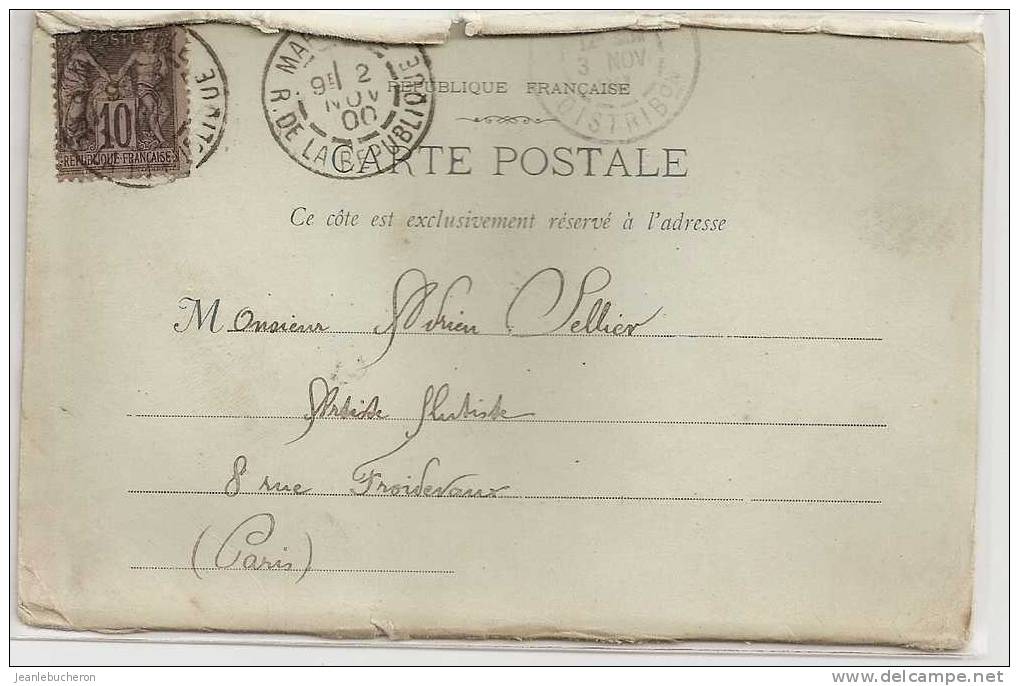 10
REPUBLIQUE FRANÇAISE
9E 2
NOV
00
R. DE LA REPUBLIQUE
3 NOV
DISTRIBON
RÉPUBLIQUE FRANÇAISE
CARTE POSTALE
Ce côte est exclusivement réservé à l'adresse
Monsieur Adrien Sellier
Artiste flutiste
8 rue Froidevaux
(Paris)
jeanlebucheron
www.delcampe.net